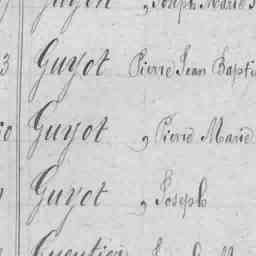 Joseph Marie
3 Guyot Pierre Jean Bapti
Guyot, Pierre Marie
Guyot, Joseph